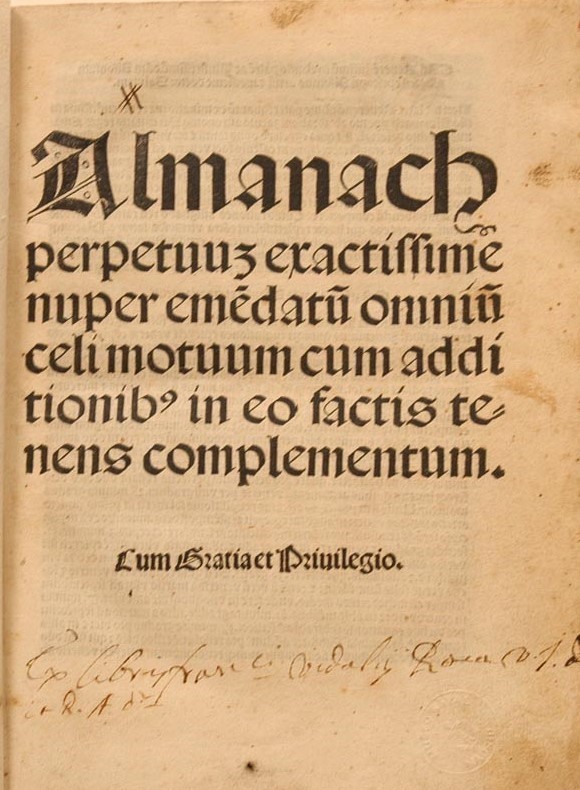 Almanach
perpetuuʒ exactiſſime
nuper emēdatū omniū
celi motuum cum addi
tionibꝰ in eo factis te⸗
nens complementum.
Cum Gratia et Priuilegio.
Ex libris